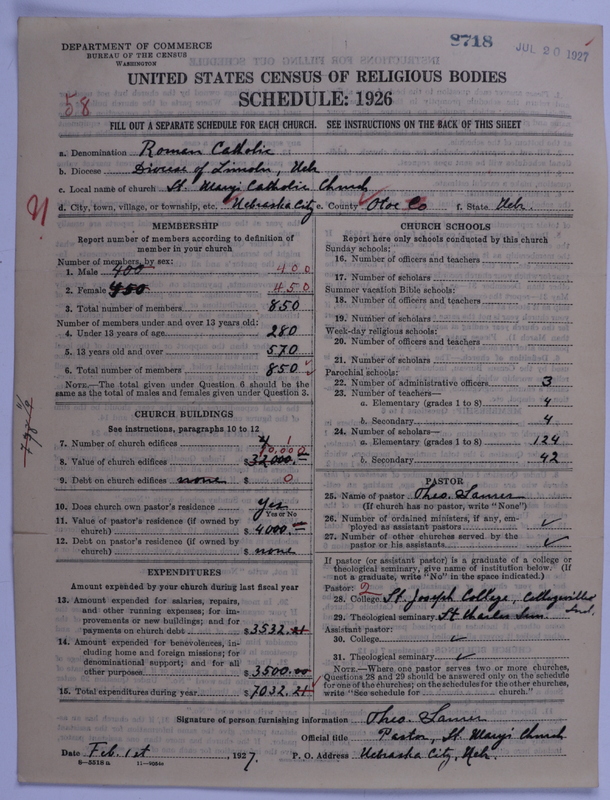 DEPARTMENT OF COMMERCE
BUREAU OF THE CENSUS
WASHINGTON
8718
JUL 20 1927
UNITED STATES CENSUS OF RELIGIOUS BODIES
SCHEDULE: 1926
58
FILL OUT A SEPARATE SCHEDULE FOR EACH CHURCH. SEE INSTRUCTIONS ON THE BACK OF THIS SHEET
a. Denomination Roman Catholic
b. Diocese Diocese of Lincoln, Neb
c. Local name of church St. Marys Catholic Church
d. City, town, village, or township, etc. Nebraska City e. County Otoe Co f. State Neb.
MEMBERSHIP
Report number of members according to definition of member in your church
Number of members, by sex:
1. Male 400 400
2. Female 450 450
3. Total number of members 850
Number of members under and over 13 years old:
4. Under 13 years of age 280
5. 13 years old and over 570
6. Total number of members 850
NOTE.—The total given under Question 6 should be the same as the total of males and females given under Question 3.
CHURCH BUILDINGS
See instructions, paragraphs 10 to 12
7. Number of church edifices 1
8. Value of church edifices $ 32000.
9. Debt on church edifices none $ 0
10. Does church own pastor's residence? Yes
Yes or No
11. Value of pastor's residence (if owned by church) $ 4000.
12. Debt on pastor's residence (if owned by church) $ none
EXPENDITURES
Amount expended by your church during last fiscal year
13. Amount expended for salaries, repairs, and other running expenses; for improvements or new buildings; and for payments on church debt $ 3532.21
14. Amount expended for benevolences, including home and foreign missions; for denominational support; and for all other purposes $ 3500.00
15. Total expenditures during year $ 7032.21
CHURCH SCHOOLS
Report here only schools conducted by this church
Sunday schools:
16. Number of officers and teachers
17. Number of scholars
Summer vacation Bible schools:
18. Number of officers and teachers
19. Number of scholars
Week-day religious schools:
20. Number of officers and teachers
21. Number of scholars
Parochial schools:
22. Number of administrative officers 3
23. Number of teachers—
a. Elementary (grades 1 to 8) 4
b. Secondary 4
24. Number of scholars—
a. Elementary (grades 1 to 8) 124
b. Secondary 42
PASTOR
25. Name of pastor Theo.
(If church has no pastor, write "None")
26. Number of ordained ministers, if any, employed as assistant pastors
27. Number of other churches served by the pastor or his assistants
If pastor (or assistant pastor) is a graduate of a college or theological seminary, give name of institution below. (If not a graduate, write "No" in the space indicated.)
Pastor: 2
28. College St. Joseph College, Collegeville Ind.
29. Theological seminary St Charles Sem.
Assistant pastor:
30. College
31. Theological seminary
NOTE.—Where one pastor serves two or more churches, Questions 28 and 29 should be answered only on the schedule for one of the churches; on the schedules for the other churches, write "See schedule for church."
Signature of person furnishing information Theo.
Official title Pastor, St. Marys Church
Date Feb. 1st, 1927. P. O. Address Nebraska City, Neb.
8—5518a 11—9054a